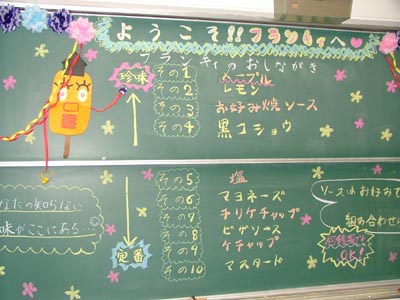 ようこそ!!フランキィへ
フランキィのおしながき
珍味
その1 メープル
その2 レモン
その3 お好み焼ソース
その4 黒コショウ
その5 塩
その6 マヨネーズ
その7 チリケチャップ
その8 ピザソース
その9 ケチャップ
その10 マスタード
定番
なたの知らない
味がここにある…
ソースはお好みで
組み合わせ
何種類でも
OK!